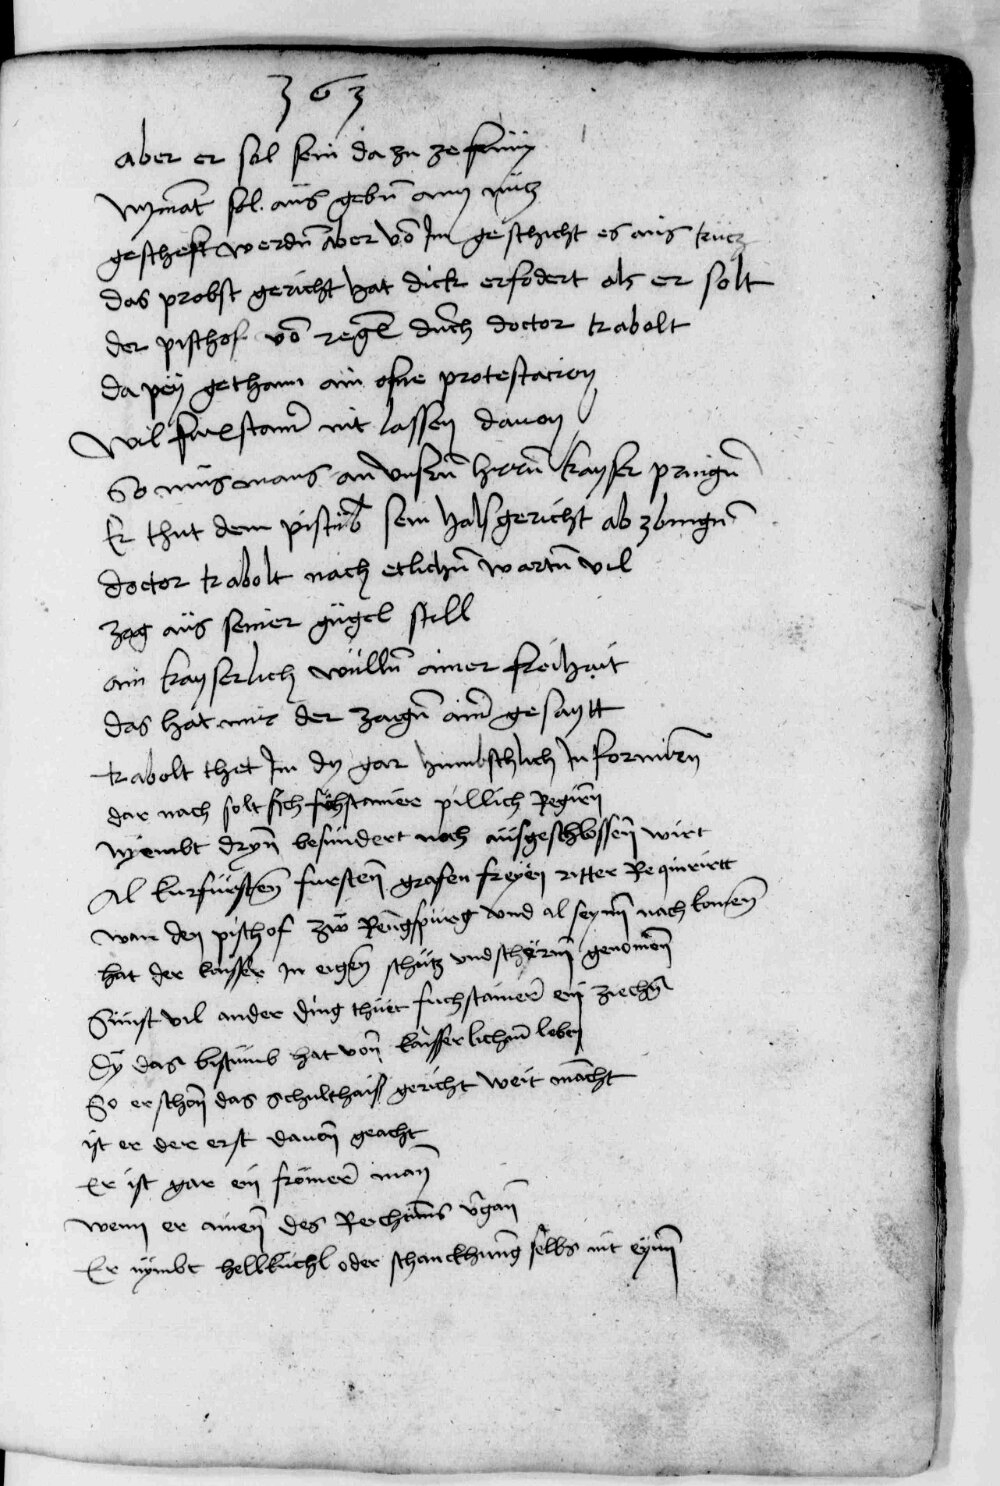 363
aber er sol sein da zu ze
Nymāt sol aus gebn̄ nutz
gescheft werdn̄ aber vō Im geschicht es aus trucz
das probst gericht hat dick erfodert als er solt
der pischof vō regēl durch doctor trabolt
da peÿ gethann ain ofne protestacion
Wil fuchstainer nit lassen dauon
So mus mans an vnsern̄ herrn̄ kayser pringn̄
Er thut dem pistūb sein halsgericht ab zbingn̄
doctor trabolt nach etlichn̄ wartn̄ vil
zog aus seiner gugel still
ain kayserlich wulln̄ ainer freihait
das hat mir der ainer gesaytt
trabolt thet Im dy gar hinibschlich In formirn̄
dar nach solt sich fuchstainer pillich Regirn̄
Nÿembt dryn̄ besundert noch ausgeschlossen̄ wirt
Al kurfürsten̄ fursten̄ grafen freÿen ritter Requirirtt
wan den pischof zw Renḡspurg vnd al seynn̄ nach komen̄
hat der kaiser In eigen̄ schutz vnd scherm̄ genomen̄
Sunst vil ander ding thuet fuchstainer ein ziechn̄
Dÿ das bistumb hat von̄ kaisserlichm̄ leben
So er schon̄ das schulthaiss gericht weit macht
ist er der erst dauon̄ geacht
Er ist gar ein fromer man̄
wenn er ainen̄ des Rechtums v̄gan̄
Er nÿmbt hellkuchl oder schanckhung selbs nit eÿnn̄